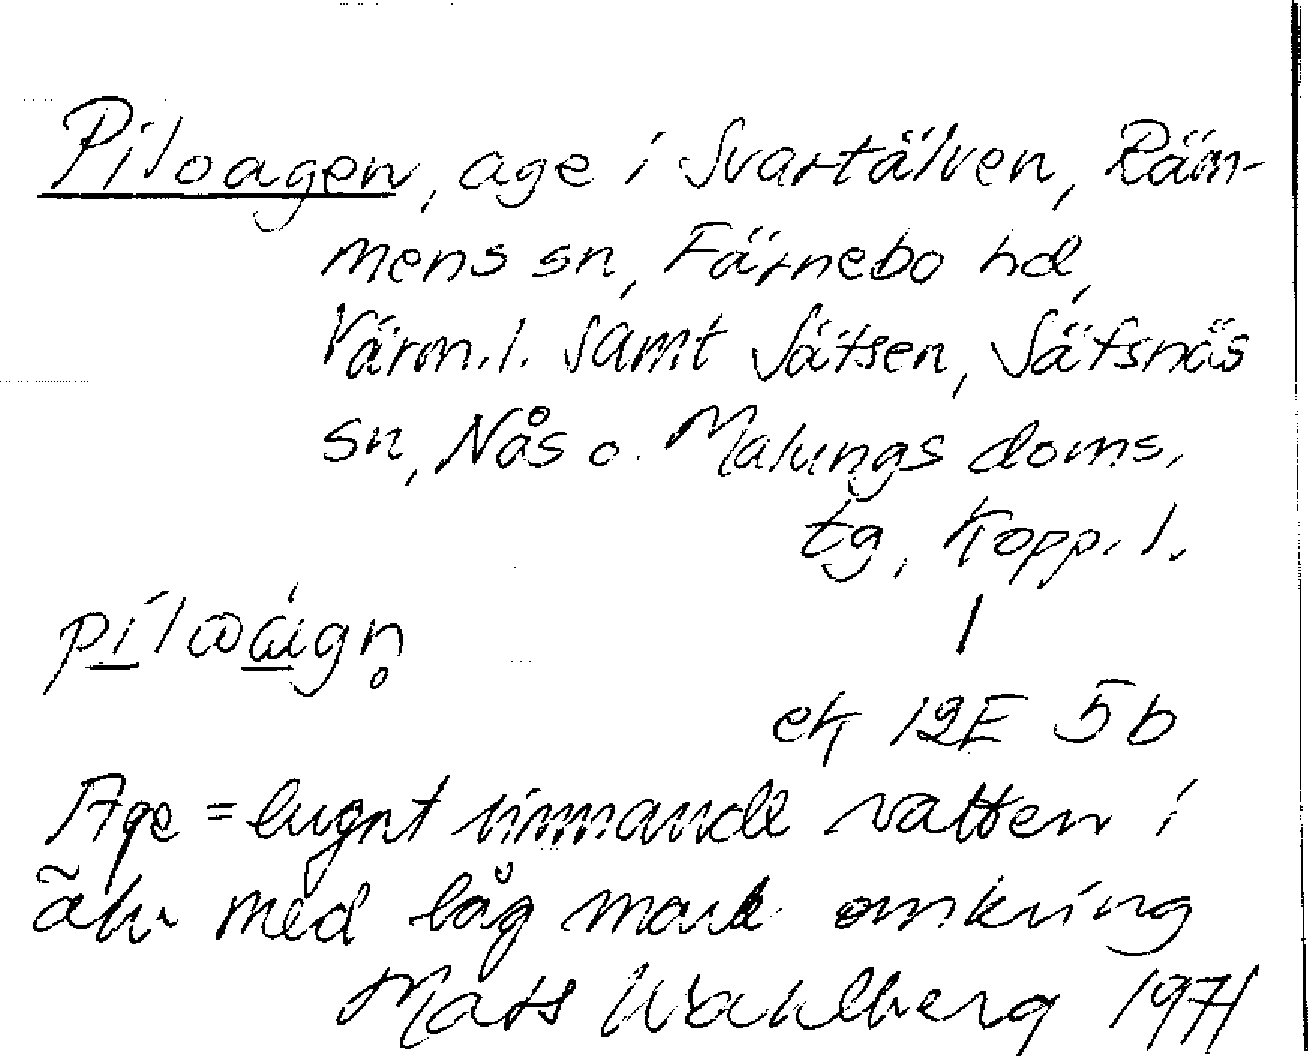 Piloagen, age i Svartälven, Räm-
mens sn, Färnebo hd,
Värm.l. samt Sätsen, Säfsnäs
sn, Nås o. Malungs doms.
tg, Kopp. l.
ek 12E 5b
Age = lugnt rinnande vatten i
älv med låg mark omkring
Mats Wahlberg 1971